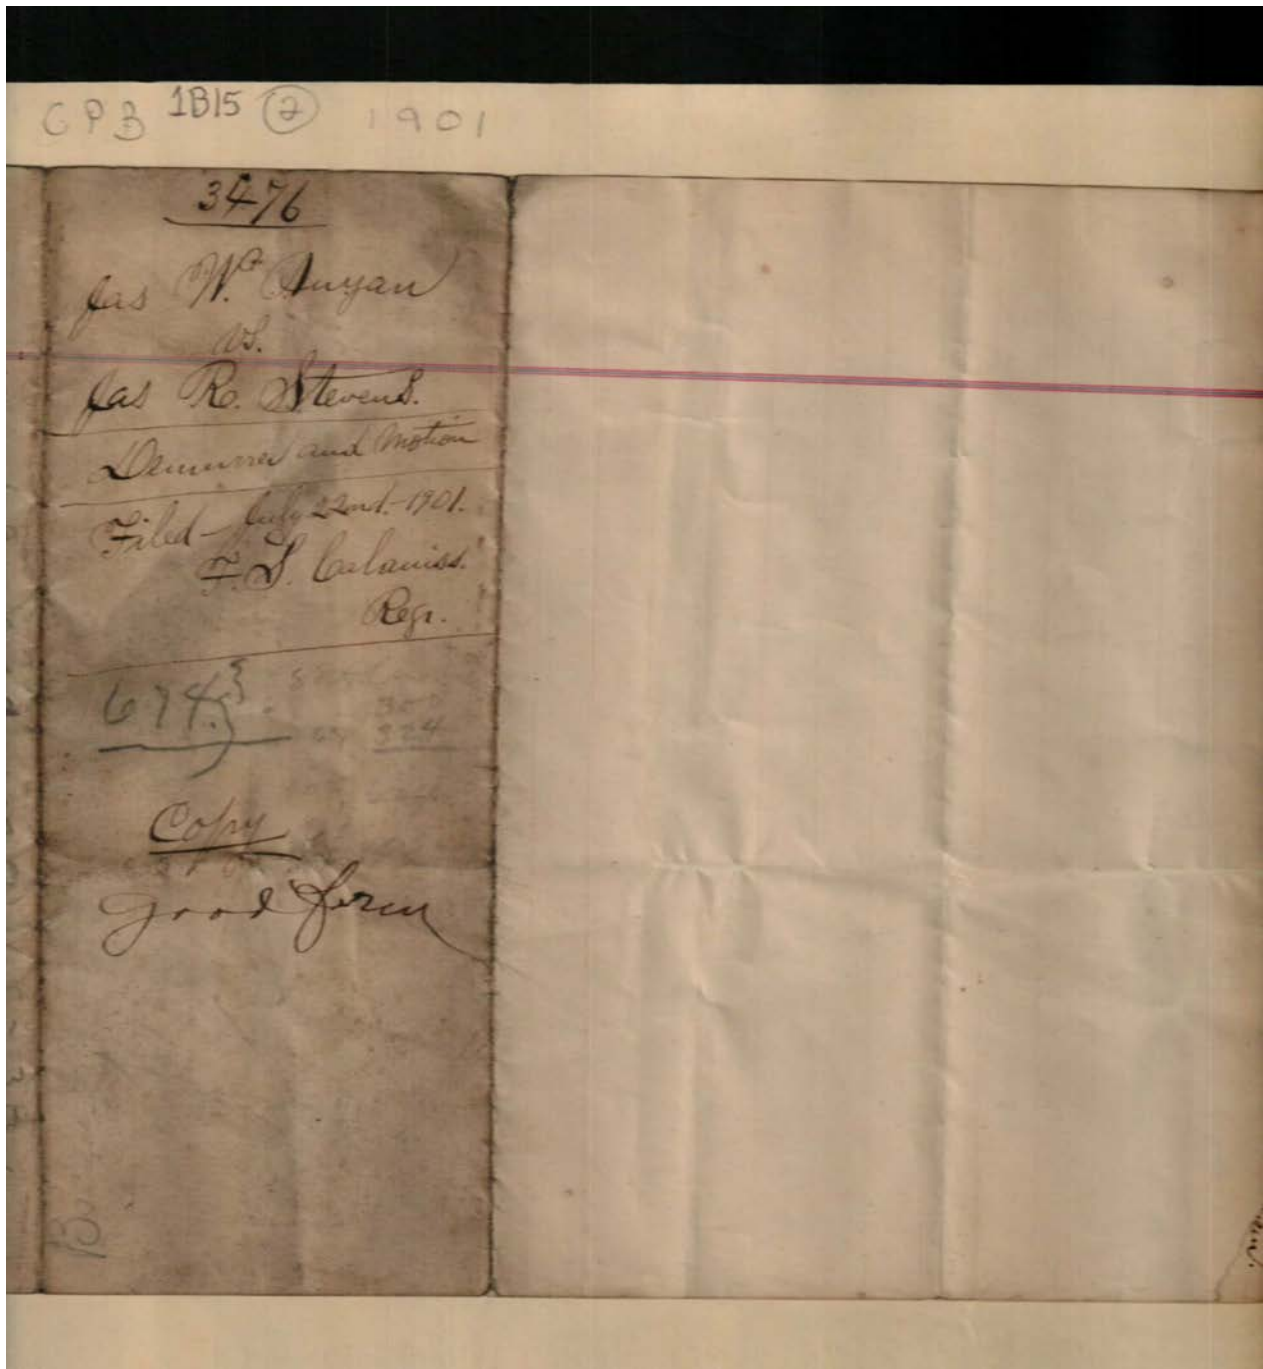 CPB 1B15 2 1901
3476
Jas W.
vs.
Jas R. Stevens.
Demurrer and Motion
Filed - July 22nd. 1901.
F. S.
Regr.
674.
324
Copy
Good form